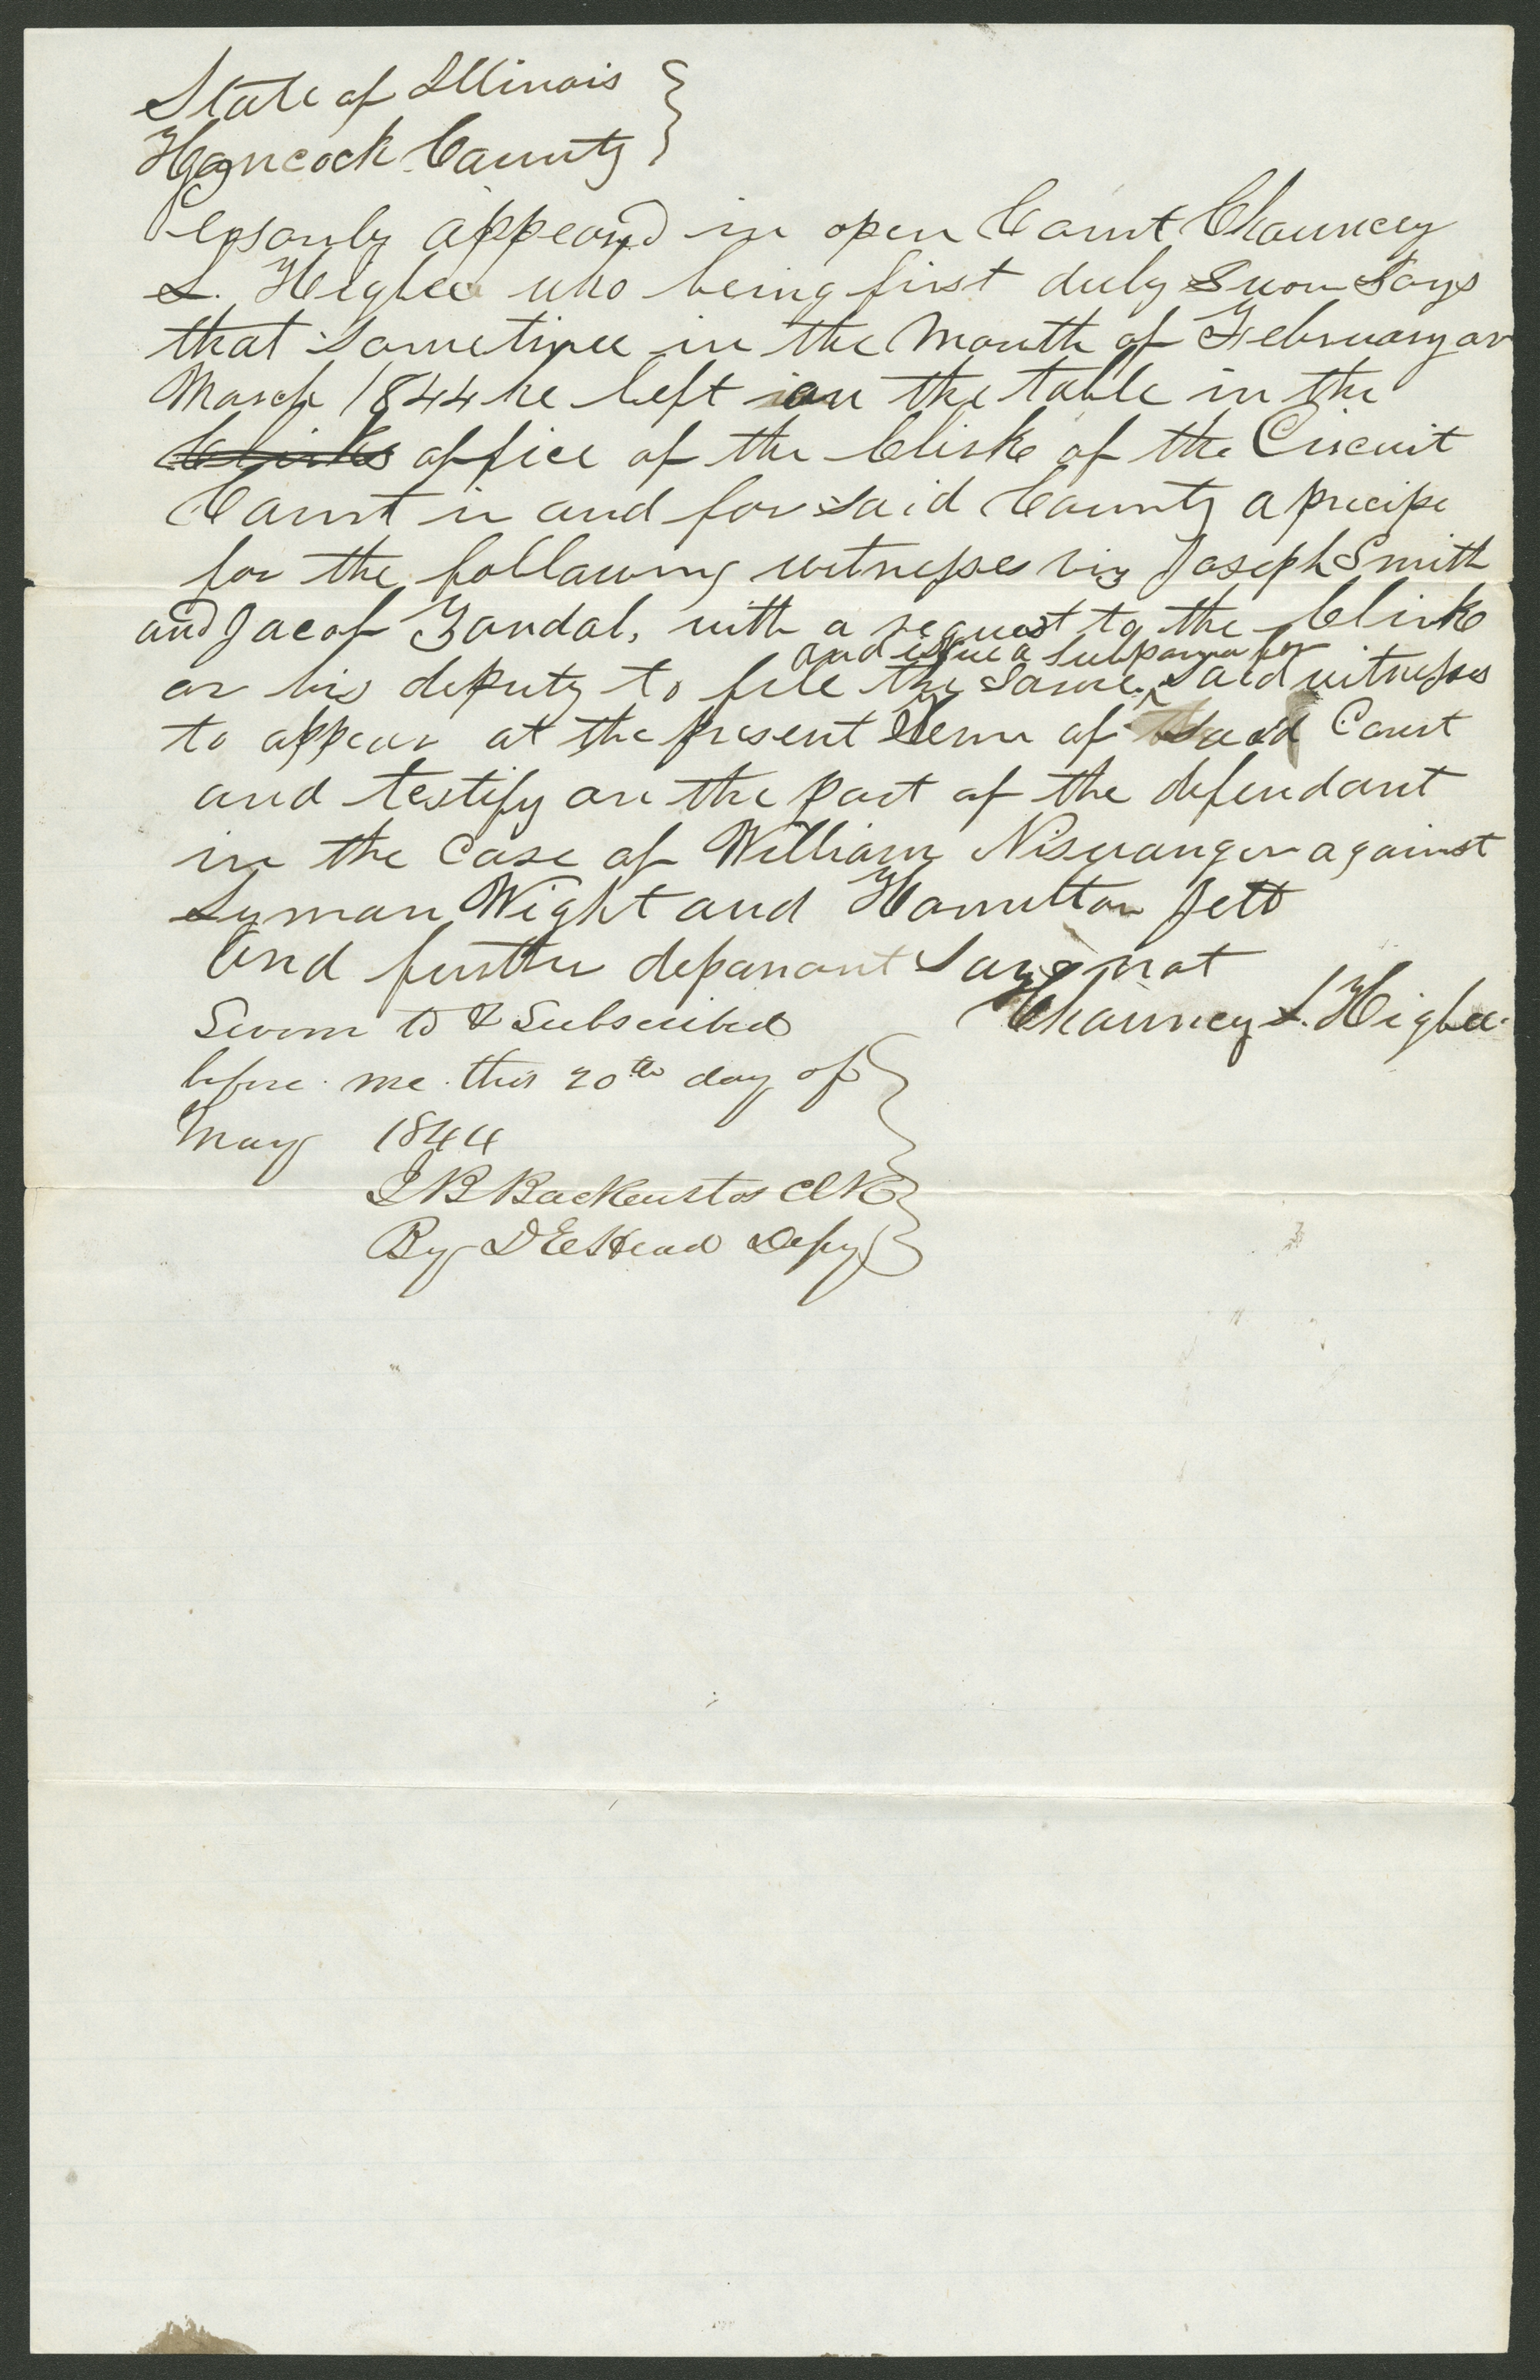 State of Illinois }
Hancock County }
Personly appeared in open Court Chauncey
L. Higbee who being first duly sworn says
that sometime in the month of February or
March 1844 he left on the table in the
Clirks office of the Clirke of the Circuit
Court in and for said County a precipe
for the following witnesses viz Joseph Smith
and Jacob Zundal, with a request to the Clirke
and issue a subpoena for
or his deputy to file the same ^ said witnesses
to appear at the present Term of said Court
and testify on the part of the defendant
in the case of William Niswanger against
Lyman Wight and Hamilton Jett
And further deponant says not
Chauncey L. Higbee.
Sworn to & Subscribed
before me this 20th day of
May 1844
J B Backenstos Clk
By D E Head Depy